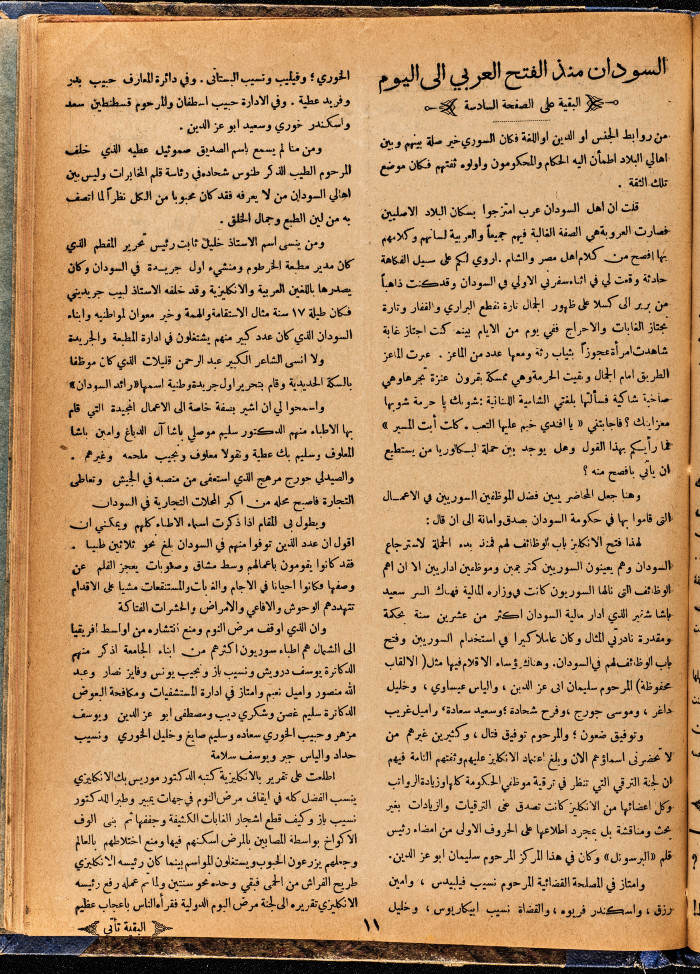 السودان منذ الفتح العربي الى اليوم
البقية على الصفحة السادسة
من روابط الجنس او الدين او اللغة فكان السوري خير صلة بينهم وبين
اهالي البلاد اطمأن اليه الحكام والمحكومون واولوه ثقتهم فكان موضع
تلك الثقة .
قلت ان اهل السودان عرب امتزجوا بسكان البلاد الاصليين
فصارت العروبة هي الصفة الغالبة فيهم جميعاً والعربية لسانهم وكلامهم
بها افصح من كلام اهل مصر والشام . اروي لكم على سبيل الفكاهة
حادثة وقعت لي في اثناء سفرتي الاولى في السودان وقد كنت ذاهباً
من بربر الى كسلا على ظهور الجمال تارة نقطع البراري والقفار وتارة
نجتاز الغابات والاحراج ففي يوم من الايام بينما كنت اجتاز غابة
شاهدت امرأة عجوزاً بثياب رثة ومعها عدد من الماعز . عبرت الماعز
الطريق امام الجمال وبقيت الحرمة وهي ممسكة بقرون عنزة تجرها وهي
صاخبة شاكية فسألتها بلغتي الشامية اللبنانية : شو بك يا حرمة شو بها
معزايتك ؟ فاجابتني « يا افندي خيم عليها التعب . كلت أبت المسير »
فما رأيكم بهذا القول وهل يوجد بين حملة البكالوريا من يستطيع
ان يأتي بافصح منه ؟
وهنا جعل المحاضر يبين فضل الموظفين السوريين في الاعمال
التى قاموا بها في حكومة السودان بصدق وامانة الى ان قال :
لهذا فتح الانكليز باب الوظائف لهم فمنذ بدء الحملة لاسترجاع
السودان وهم يعينون السوريين كمترجمين وموظفين اداريين الا ان اهم
الوظائف التى نالها السوريون كانت في وزارة المالية فهناك السر سعيد
باشا شقير الذي ادار مالية السودان اكثر من عشرين سنة بحكمة
ومقدرة نادرتي المثال وكان عاملا كبيرا في استخدام السوريين وفتح
باب الوظائف لهم في السودان. وهناك رؤساء الاقلام فيها مثل ( الالقاب
محفوظة ) المرحوم سليمان ابى عز الدين ، والياس عيساوي ، وخليل
داغر ، وموسى جورج ، وفرح شحادة ؛ وسعيد سعادة ، راميل غريب
وتوفيق ضعون ؛ والمرحوم توفيق فتال ، وكثيرين غيرهم من
لا تحضرني اسماؤهم الآن وبلغ اعتماد الانكليز عليهم وثقتهم التامة فيهم
ان لجنة الترقي التي تنظر في ترقية موظفي الحكومة كلها وزيادة الرواتب
وكل اعضائها من الانكليز كانت تصدق على الترقيات والزيادات بغير
بحث ومناقشة بل بمجرد اطلاعها على الحروف الاولى من امضاء رئيس
قلم «البرسونل» وكان في هذا المركز المرحوم سليمان ابو عز الدين.
وامتاز في المصلحة القضائية المرحوم نسيب فيليبدس ، وامين
رزق ، واسكندر فريوه ، والقضاة نسيب ابيكاريوس ، وخليل
الخوري ؛ وفيليب ونسيب البستانى . وفي دائرة المعارف حبيب بدر
وفريد عطية . وفي الادارة حبيب اسطفان والمرحوم قسطنطين سعد
واسكندر خوري وسعيد ابو عز الدين .
ومن منا لم يسمع باسم الصديق صموئيل عطيه الذي خلف
المرحوم الطيب الذكر طنوس شحاده في رئاسة قلم المخابرات وليس بين
اهالي السودان من لا يعرفه فقد كان محبوبا من الكل نظراً لما اتصف
به من لين الطبع وجمال الخلق .
ومن ينسى اسم الاستاذ خليل ثابت رئيس تحرير المقطم الذي
كان مدير مطبعة الخرطوم ومنشيء اول جريدة في السودان وكان
يصدرها باللغتين العربية والانكليزية وقد خلفه الاستاذ لبيب جريديني
فكان طيلة ١٧ سنة مثال الاستقامة والهمة وخير معوان لمواطنيه وابناء
السودان الذي كان عدد كبير منهم يشتغلون في ادارة المطبعة والجريدة
ولا انسى الشاعر الكبير عبد الرحمن قليلات الذي كان موظفا
بالسكة الحديدية وقام بتحرير اول جريدة وطنية اسمها «رائد السودان»
واسمحوا لي ان اشير بصفة خاصة الى الاعمال المجيدة التي قام
بها الاطباء منهم الدكتور سليم موصلي باشا آل الدباغ وامين باشا
المعلوف وسليم بك عطية ونقولا معلوف ونجيب ملحمه وغيرهم .
والصيدلي جورج مرهج الذي استعفى من منصبه في الجيش وتعاطى
التجارة فاصبح محله من اكبر المحلات التجارية في السودان
ويطول بى المقام اذا ذكرت اسماء الاطباء كلهم ويمكنني ان
اقول ان عدد الذين توفوا منهم في السودان بلغ نحو ثلاثين طبيبا .
فقد كانوا يقومون باعمالهم وسط مشاق وصعوبات يعجز القلم عن
وصفها فكانوا احيانا في الاجام والغابات والمستنقعات مشيا على الاقدام
تتهددهم الوحوش والافاعي والامراض والحشرات الفتاكة
وان الذي اوقف مرض النوم ومنع انتشاره من اواسط افريقيا
الى الشمال هم اطباء سوريون اكثرهم من ابناء الجامعة اذكر منهم
الدكاترة يوسف درويش ونسيب باز ونجيب يونس وفايز نصار وعبد
الله منصور واميل نعيم وامتاز في ادارة المستشفيات ومكافحة البعوض
الدكاترة سليم غصن وشكري ديب ومصطفى ابو عز الدين ويوسف
مزهر وحبيب الخوري سعاده وسليم صايغ وخليل الخوري ونسيب
حداد والياس جبر ويوسف سلامة
اطلعت على تقرير بالانكليزية كتبه الدكتور موريس بك الانكليزي
ينسب الفضل كله في ايقاف مرض النوم في جهات يمبيو وطبرا للدكتور
نسيب باز وكيف قطع اشجار الغابات الكثيفة وجففها ثم بنى الوف
الاكواخ بواسطة المصابين بالمرض اسكنهم فيها ومنع اختلاطهم بالعالم
وجعلهم يزرعون الحبوب ويستغلون المواسم بينما كان رئيسه الانكليزي
طريح الفراش من الحمى فبقي وحده نحو سنتين ولما تم عمله رفع رئيسه
الانكليزي تقريره الى لجنة مرض النوم الدولية فقرأه الناس باعجاب عظيم
البقية تأتي
١١